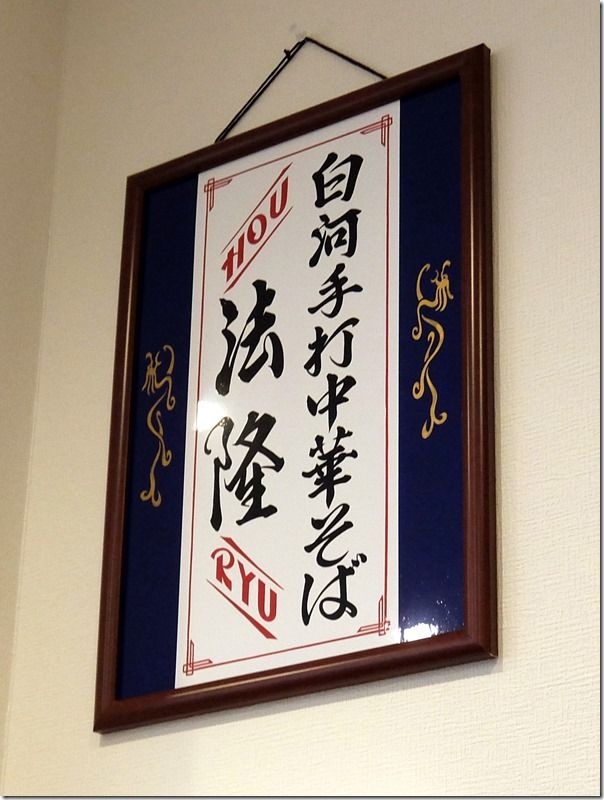 白河手打中華そば
HOU
法隆
RYU